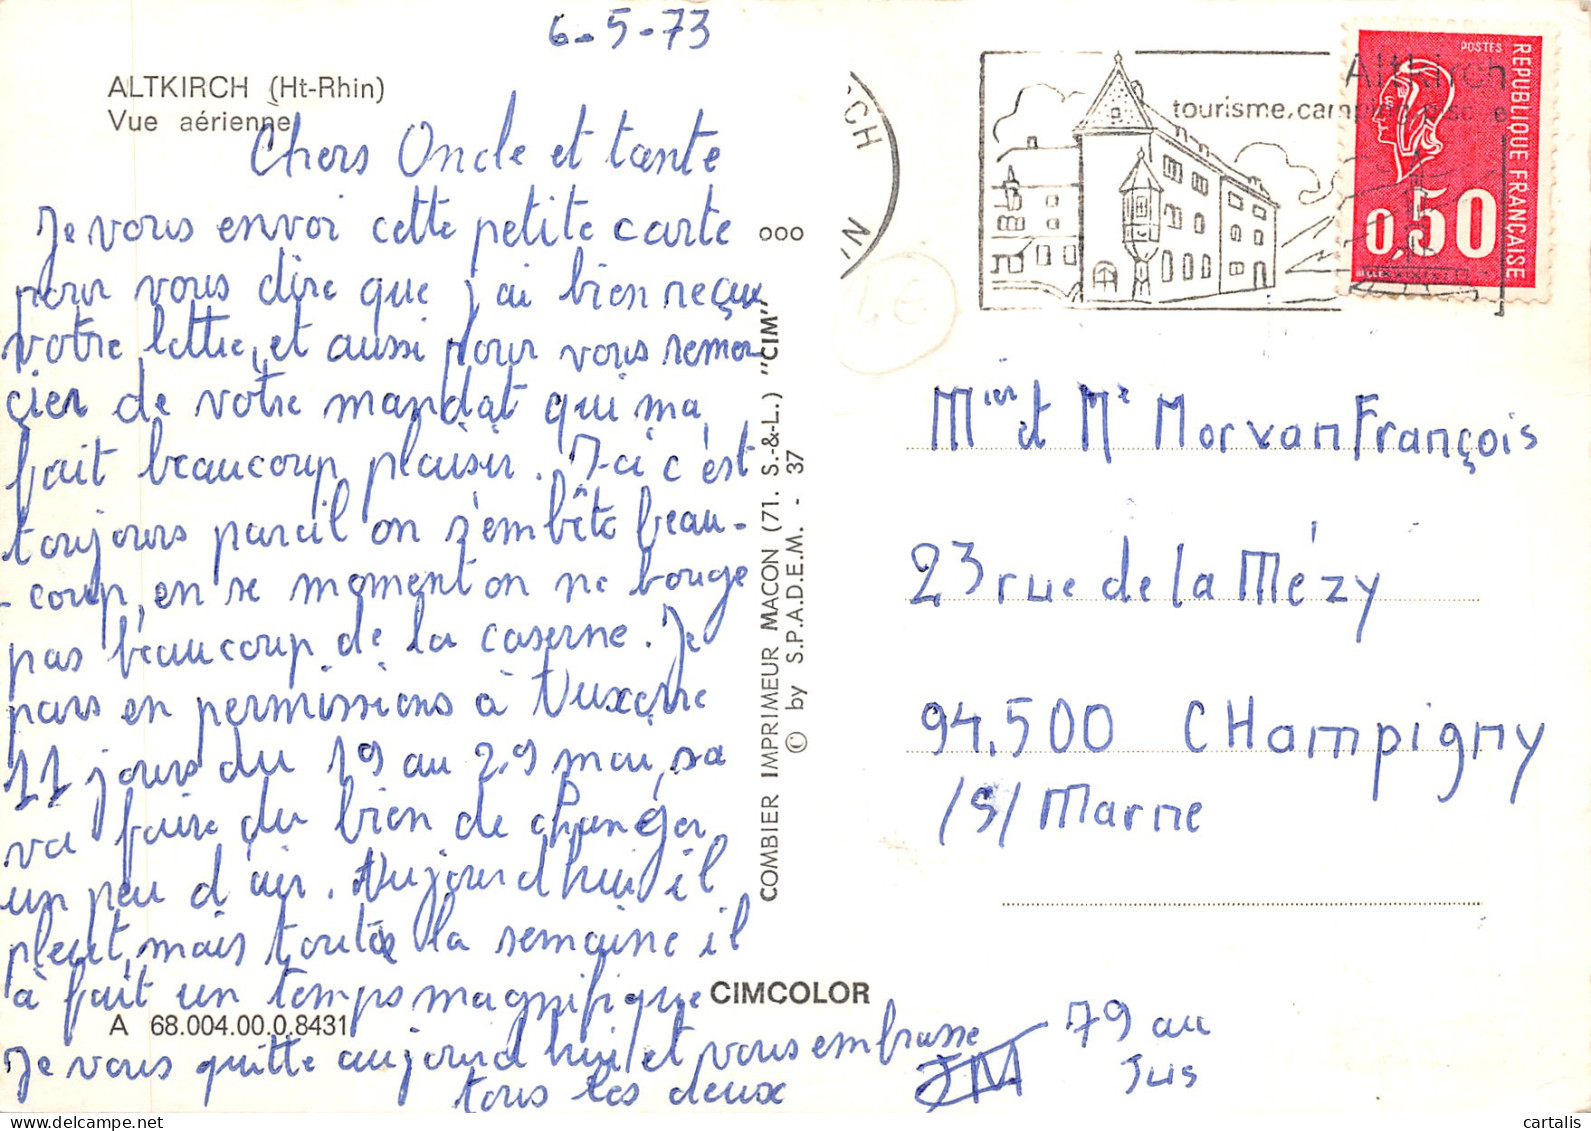 6-5-73
ALTKIRCH (Ht-Rhin)
Vue aérienne
Chers Oncle et tante
Je vous envoi cette petite carte
pour vous dire que j'ai bien reçue
votre lettre, et aussi pour vous remer
çier de votre mandat qui m'a
fait beaucoup plaisir. Ici c'est
toujours pareil on s'embête beau-
-coup, en se moment on ne bouge
pas beaucoup de la caserne. Je
pars en permissions à Auxerre
11 jours du 19 au 29 mai, sa
va faire du bien de changer
un peu d'air. Aujourd'hui il
pleut, mais toute la semaine il
à fait un temps magnifique
Je vous quitte aujourd'hui et vous embrasse
tous les deux
JM
79 au
Jus
CIMCOLOR
A 68.004.00.0.8431
COMBIER IMPRIMEUR MACON (71. S.-&-L.) "CIM"
© by S.P.A.D.E.M. - 37
000
CH
Altkirch
tourisme, camping, piscine
POSTES
REPUBLIQUE FRANÇAISE
0,50
1€
Mier et Me Morvan François
23 rue de la Mézy
94.500 CHampigny
/S/ Marne
cartalis
delcampe.net